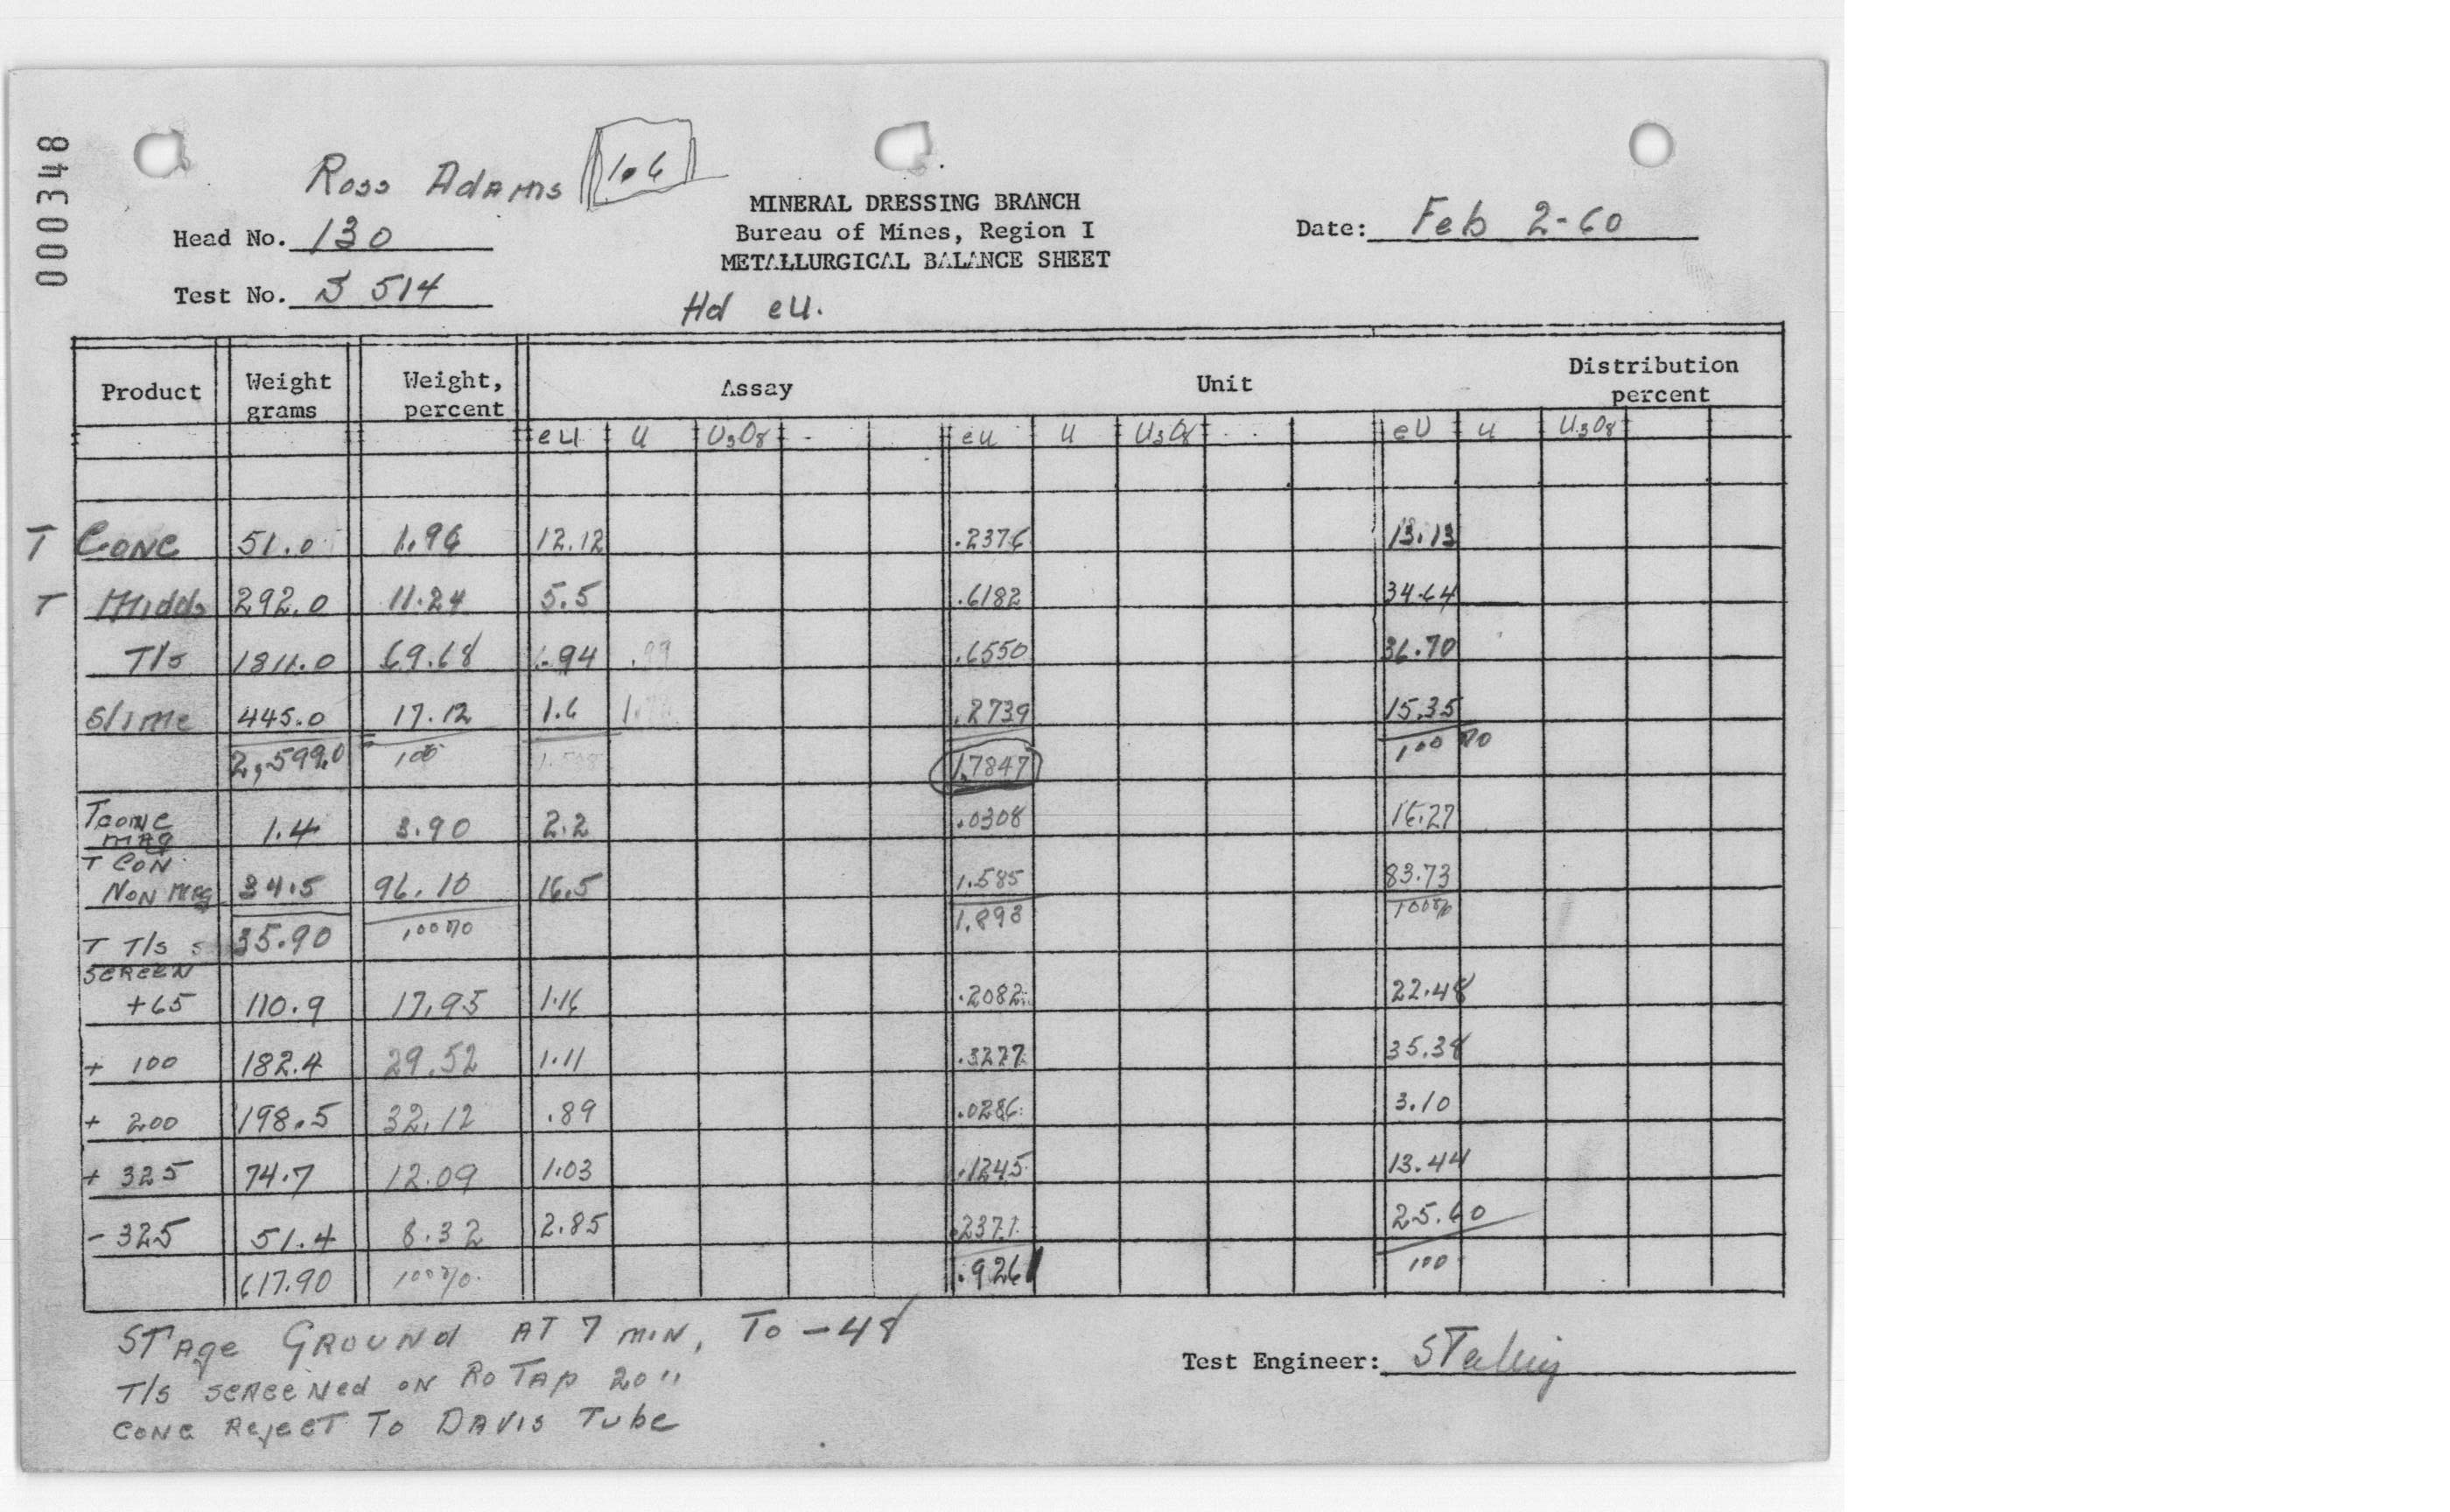 000348
Ross Adams 1.6
MINERAL DRESSING BRANCH
Bureau of Mines, Region I
METALLURGICAL BALANCE SHEET
Date: Feb 2-60
Head No. 130
Test No. S 514
Hd eU.
Product Weight grams Weight, percent Assay Unit Distribution percent
eU U U3O8 eU U U3O8 eU U U3O8
T Conc 51.0 1.96 12.12 .2376 13.13
T Midds 292.0 11.24 5.5 .6182 34.64
T/s 1811.0 69.68 .94 .99 .6550 36.70
Slime 445.0 17.12 1.6 .2739 15.35
2,599.0 100 1.7847 100 %
T conc mag 1.4 3.90 2.2 .0308 16.27
T Con Non Mag 34.5 96.10 16.5 1.585 83.73
35.90 100% 1.893 100%
T T/s s
screen
+65 110.9 17.95 1.16 .2082 22.48
+ 100 182.4 29.52 1.11 .3277 35.38
+ 200 198.5 32.12 .89 .0286 3.10
+ 325 74.7 12.09 1.03 .1245 13.44
- 325 51.4 8.32 2.85 .2371 25.60
617.90 100% .9261 100
STage GROUNd AT 7 MIN, To -48
T/s screened on Ro Tap 20"
conc Reject To DAVIS Tube
Test Engineer: